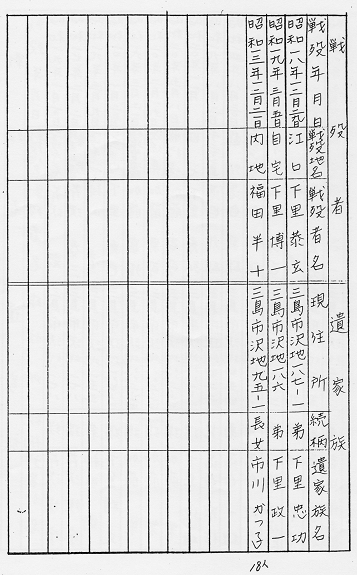 戦歿者 遺家族
戦歿年月日 戦歿地名 戦歿者名 現住所 続柄 遺家族名
昭和一八年一二月二 江口 下里泰玄 三島市沢地一八七-一 弟 下里忠功
昭和一九年三月 自宅 下里博一 三島市沢地一八六 弟 下里政一
昭和一三年一二月二日 内地 福田半十 三島市沢地九五-一 長女 市川かつ
18人